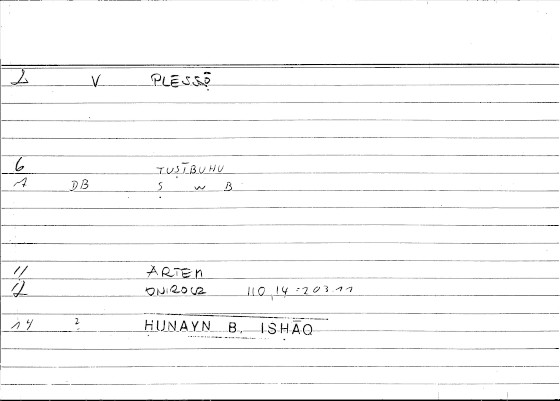 2 V PLESSŌ
6 TUṢĪBUHU
7 DB Ṣ W B
11 ARTEM
12 ONIROCR 110,14 = 203.11
14 2 ḤUNAYN B. ISḤĀQ